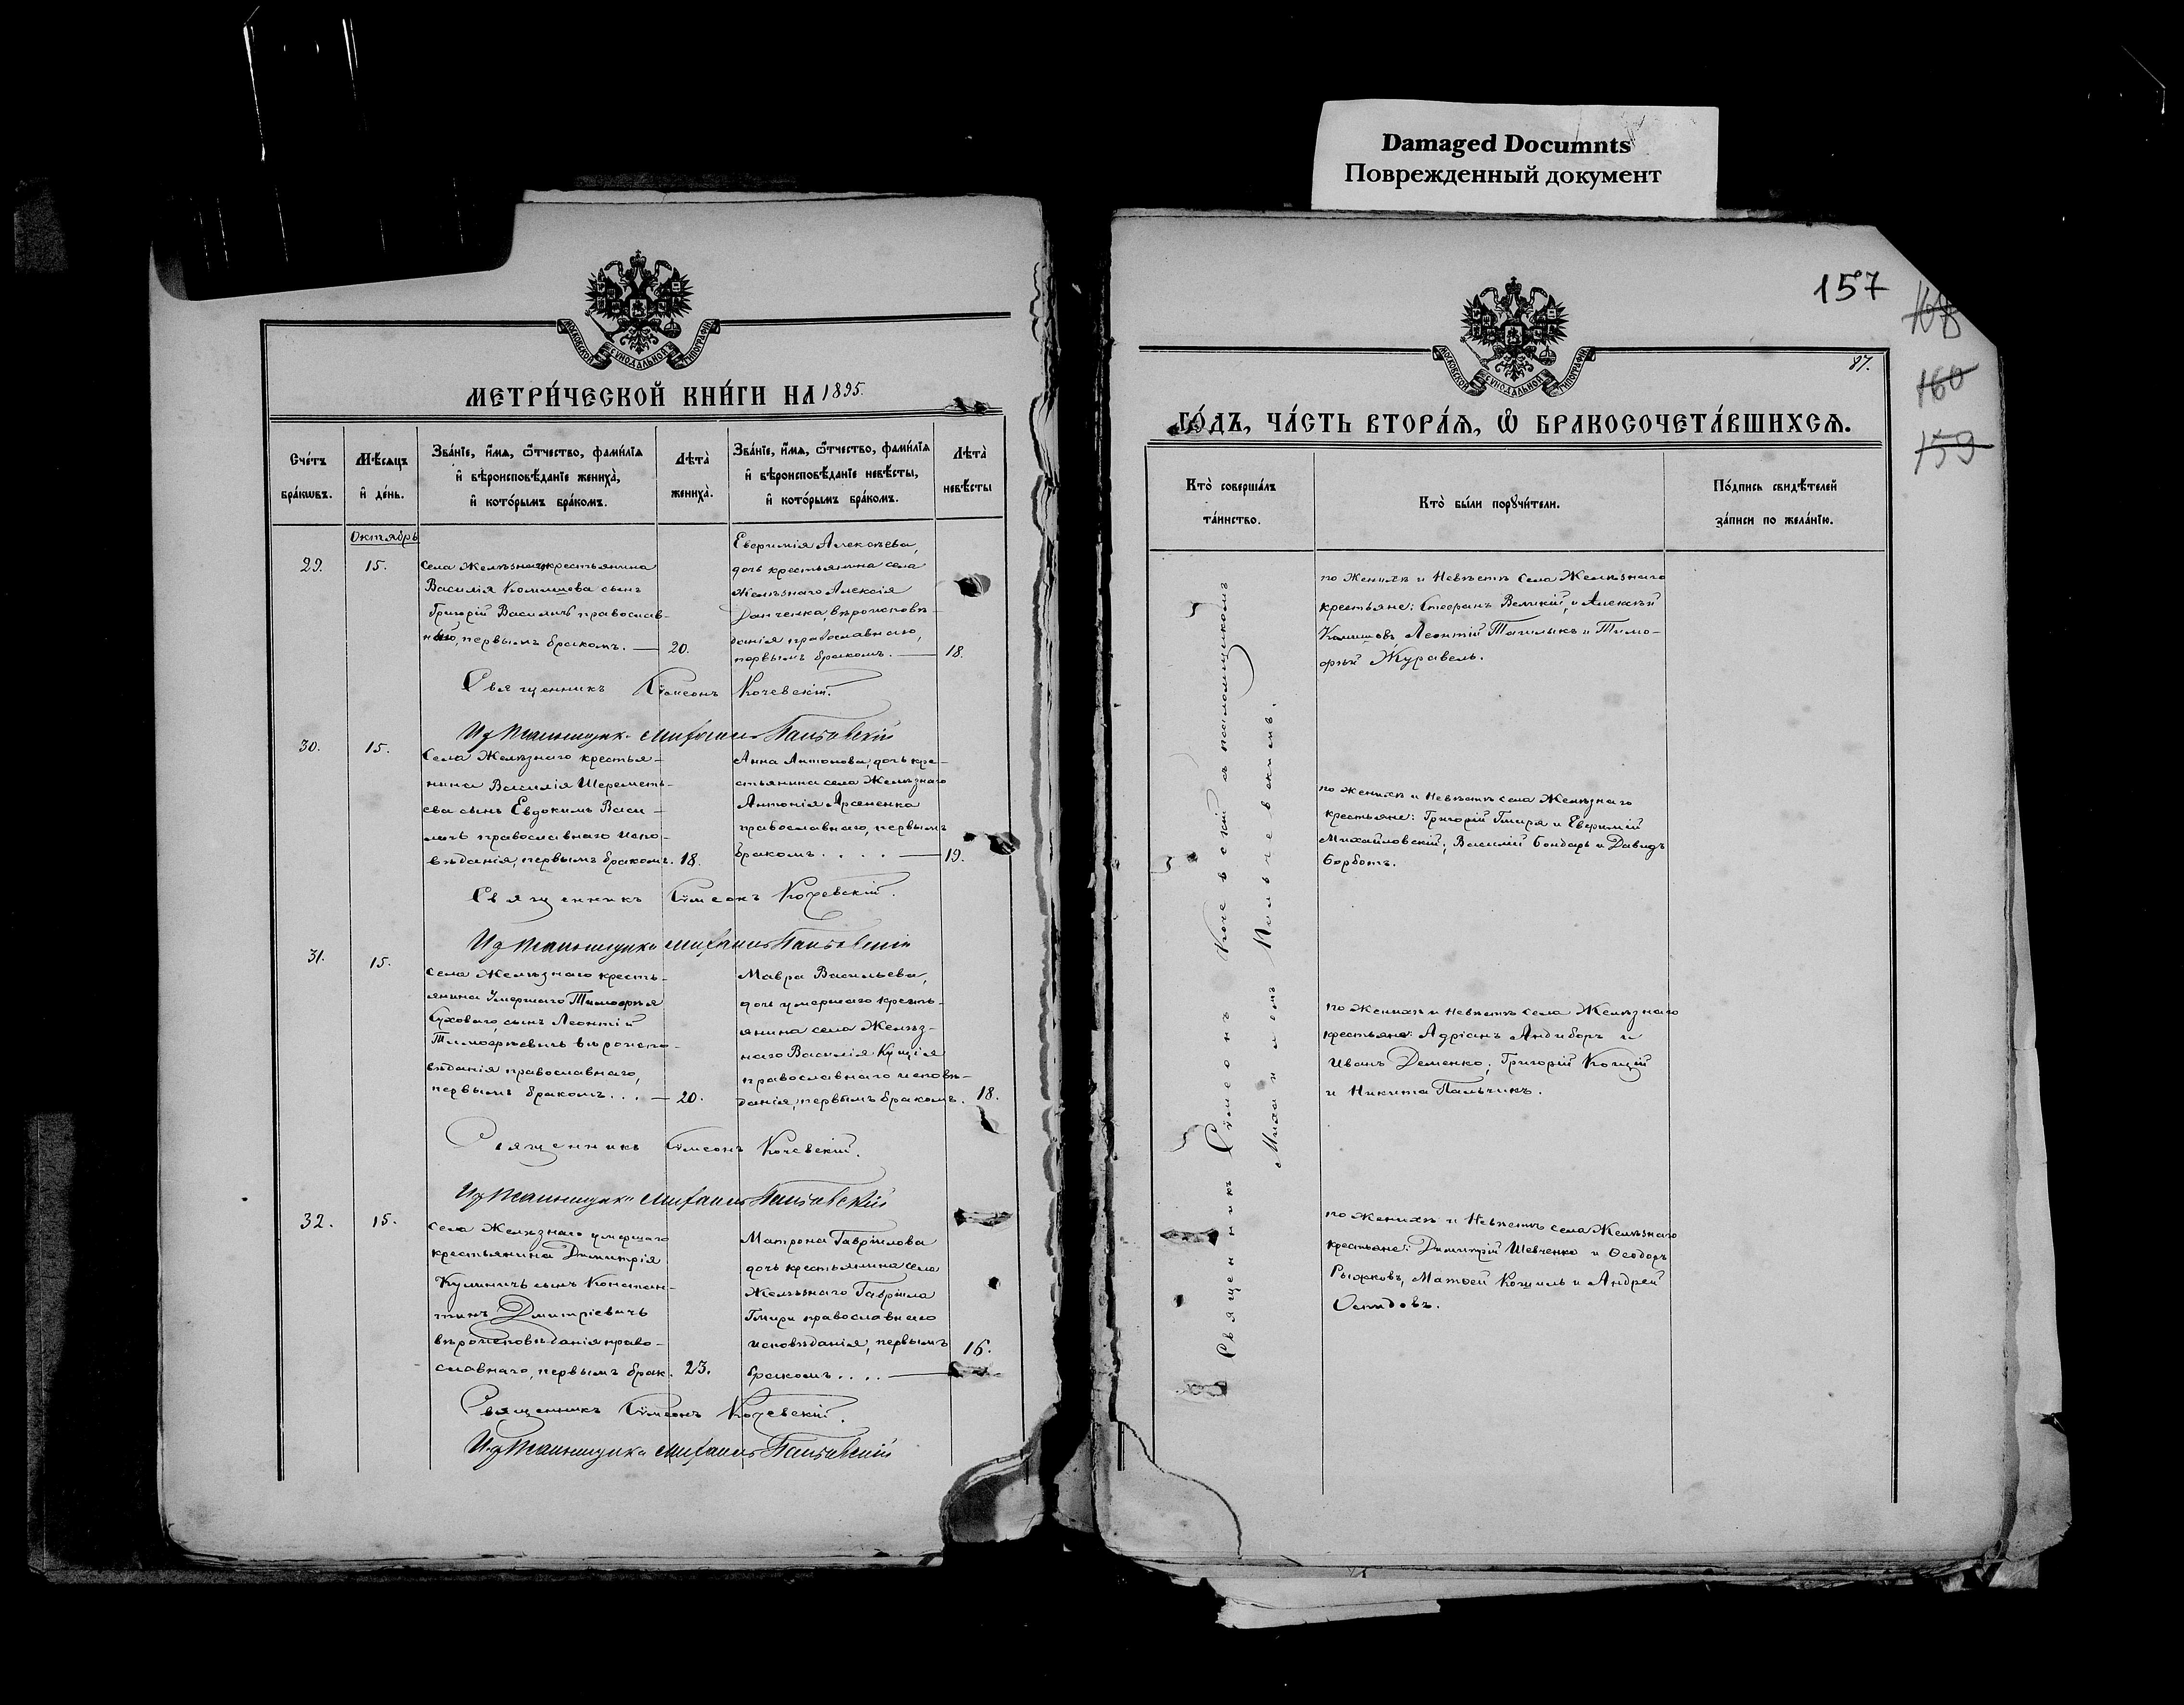 Damaged Documnts
Поврежденный документ
МОСКОВСКОЙ СѴНОДАЛЬНОЙ ТИПОГРАФІИ
МЕТРИ́ЧЕСКОЙ КНИ́ГИ НА 1895.
Сче́тъ бра́кωвъ.
Мѣ́сяцъ и҆ де́нь.
Зва́нїе, и҆́мѧ, ѻ҆́тчество, фами́лїѧ и҆ вѣроисповѣ́данїе жениха̀, и҆ кото́рымъ бра́комъ.
Лѣта̀ жениха̀.
Зва́нїе, и҆́мѧ, ѻ҆́тчество, фами́лїѧ и҆ вѣроисповѣ́данїе невѣ́сты, и҆ кото́рымъ бра́комъ.
Лѣта̀ невѣ́сты
Октябрь
29.
15.
Села Желѣзнаго крестьянина
Василія Комишова сынъ
Григорій Василичъ православ-
первымъ бракомъ. —
20.
Евѳимія Алексѣева,
дочь крестьянина села
Желѣзнаго Алексія
Данченка, вѣроисповѣ-
данія православнаго,
первымъ бракомъ. —
18.
Священникъ Сѵмеонъ Кочевскій.
Псаломщикъ Михаилъ
30.
15.
Села Желѣзнаго крестья-
нина Василія Шереметь-
ева сынъ Евдокимъ Васи-
личъ православнаго испо-
вѣданія, первымъ бракомъ.
18.
Анна Антонова, дочь кре-
стьянина села Желѣзнаго
Антонія Арсененка
православнаго, первымъ
бракомъ. . . . —
19.
Священникъ Сѵмеонъ Кочевскій.
Псаломщикъ Михаилъ
31.
15.
Села Желѣзнаго кресть-
янина умершаго Тимоѳея
Суховаго, сынъ Леонтій
Тимоѳеевичъ вѣроиспо-
вѣданія православнаго,
первымъ бракомъ. . . —
20.
Мавра Васильева,
дочь умершаго кресть-
янина села Желѣз-
наго Василія Куція
православнаго исповѣ-
данія, первымъ бракомъ.
18.
Священникъ Сѵмеонъ Кочевскій.
Псаломщикъ Михаилъ
32.
15.
Села Желѣзнаго умершаго
крестьянина Димитрія
Кулиничъ сынъ Констан-
тинъ Дмитріевичъ
вѣроисповѣданія право-
славнаго, первымъ брак.
23.
Матрона Гавріилова
дочь крестьянина села
Желѣзнаго Гавріила
Гмири православнаго
исповѣданія, первымъ
бракомъ. . . . —
16.
Священникъ Сѵмеонъ Кочевскій.
Псаломщикъ Михаилъ
157
168
160
159
87.
МОСКОВСКОЙ СѴНОДАЛЬНОЙ ТИПОГРАФІИ
ГО́ДЪ, ЧА́СТЬ ВТОРА́Ѧ, Ѡ҆ БРАКОСОЧЕТА́ВШИХСѦ.
Кто̀ соверша́лъ та́инство.
Кто̀ бы́ли порꙋчи́тели.
По́дпись свидѣ́телей за́писи по жела́нїю.
Священникъ Сѵмеонъ Кочевскій съ псаломщикомъ
Михаиломъ
по Женихѣ и Невѣстѣ Села Желѣзнаго
крестьяне: Стефанъ Великій, и Алексѣй
Комишовъ Леонтій Тагилыкъ и Тимо-
фей Журавель.
по женихѣ и невѣстѣ села Желѣзнаго
крестьяне: Григорій Гмиря и Евѳимій
Михайловскій; Василій Бондарь и Давидъ
Борботъ.
по женихѣ и невѣстѣ села Желѣзнаго
крестьяне: Адріанъ Андиборъ и
Иванъ Деменко; Григорій Коцій
и Никита Пальчикъ.
по женихѣ и невѣстѣ села Желѣзнаго
крестьяне: Димитрій Шевченко и Ѳеодоръ
Рыжковъ, Матѳей Кошиль и Андрей